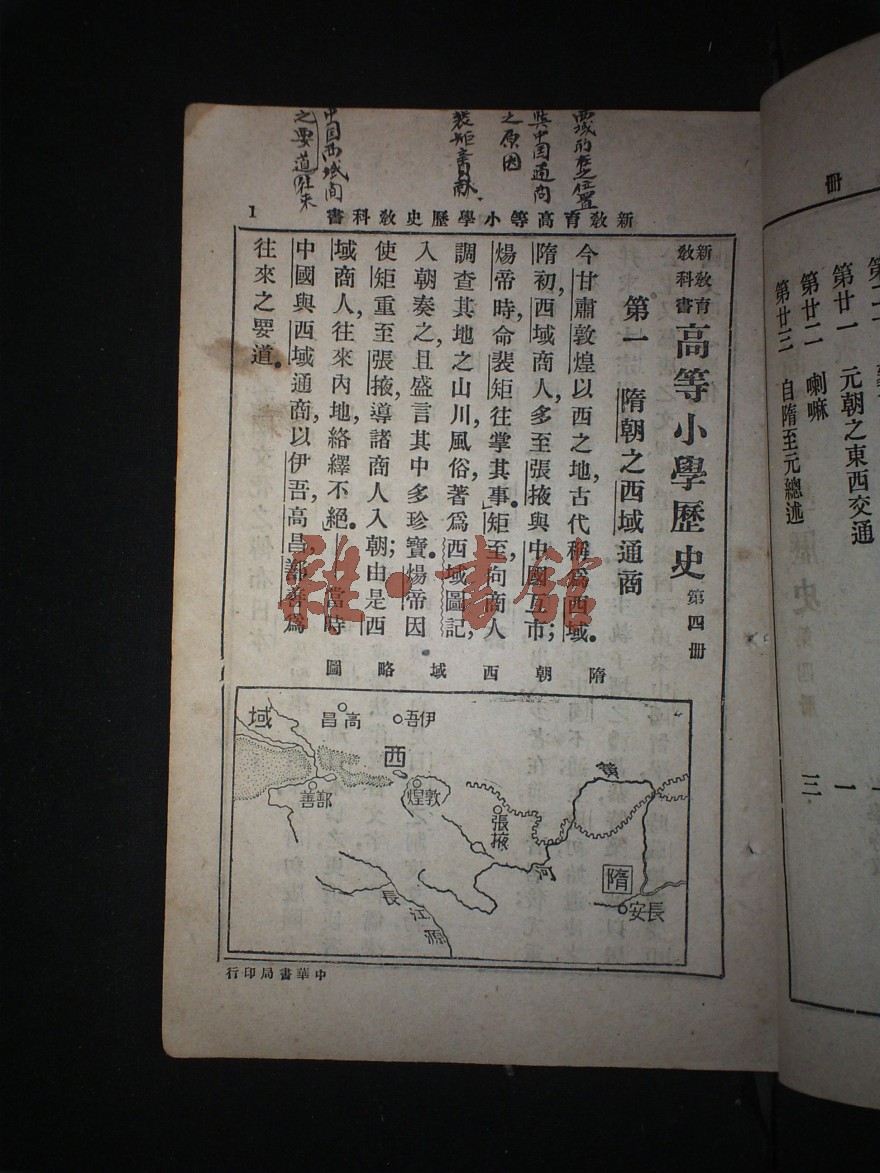 西域的歷史位置
與中国通商
之原因
裴矩書献
中国西域間
之要道往来
新教育高等小學歷史教科書
1
新教育
教科書
高等小學歷史 第四册
第一 隋朝之西域通商
今甘肅敦煌以西之地,古代稱爲西域。
隋初,西域商人,多至張掖與中國互市;
煬帝時,命裴矩往掌其事。矩至,向商人
調查其地之山川風俗,著爲西域圖記,
入朝奏之,且盛言其中多珍寶。煬帝因
使矩重至張掖,導諸商人入朝;由是西
域商人,往來內地,絡繹不絕。當時
中國與西域通商,以伊吾,高昌,鄯善爲
往來之要道。
隋朝西域略圖
域
高昌
伊吾
西
鄯善
敦煌
張掖
黃
河
隋
長安
長江源
中華書局印行
雜·書館
册
第廿一 元朝之東西交通 一
第廿二 喇嘛
第廿三 自隋至元總述 三